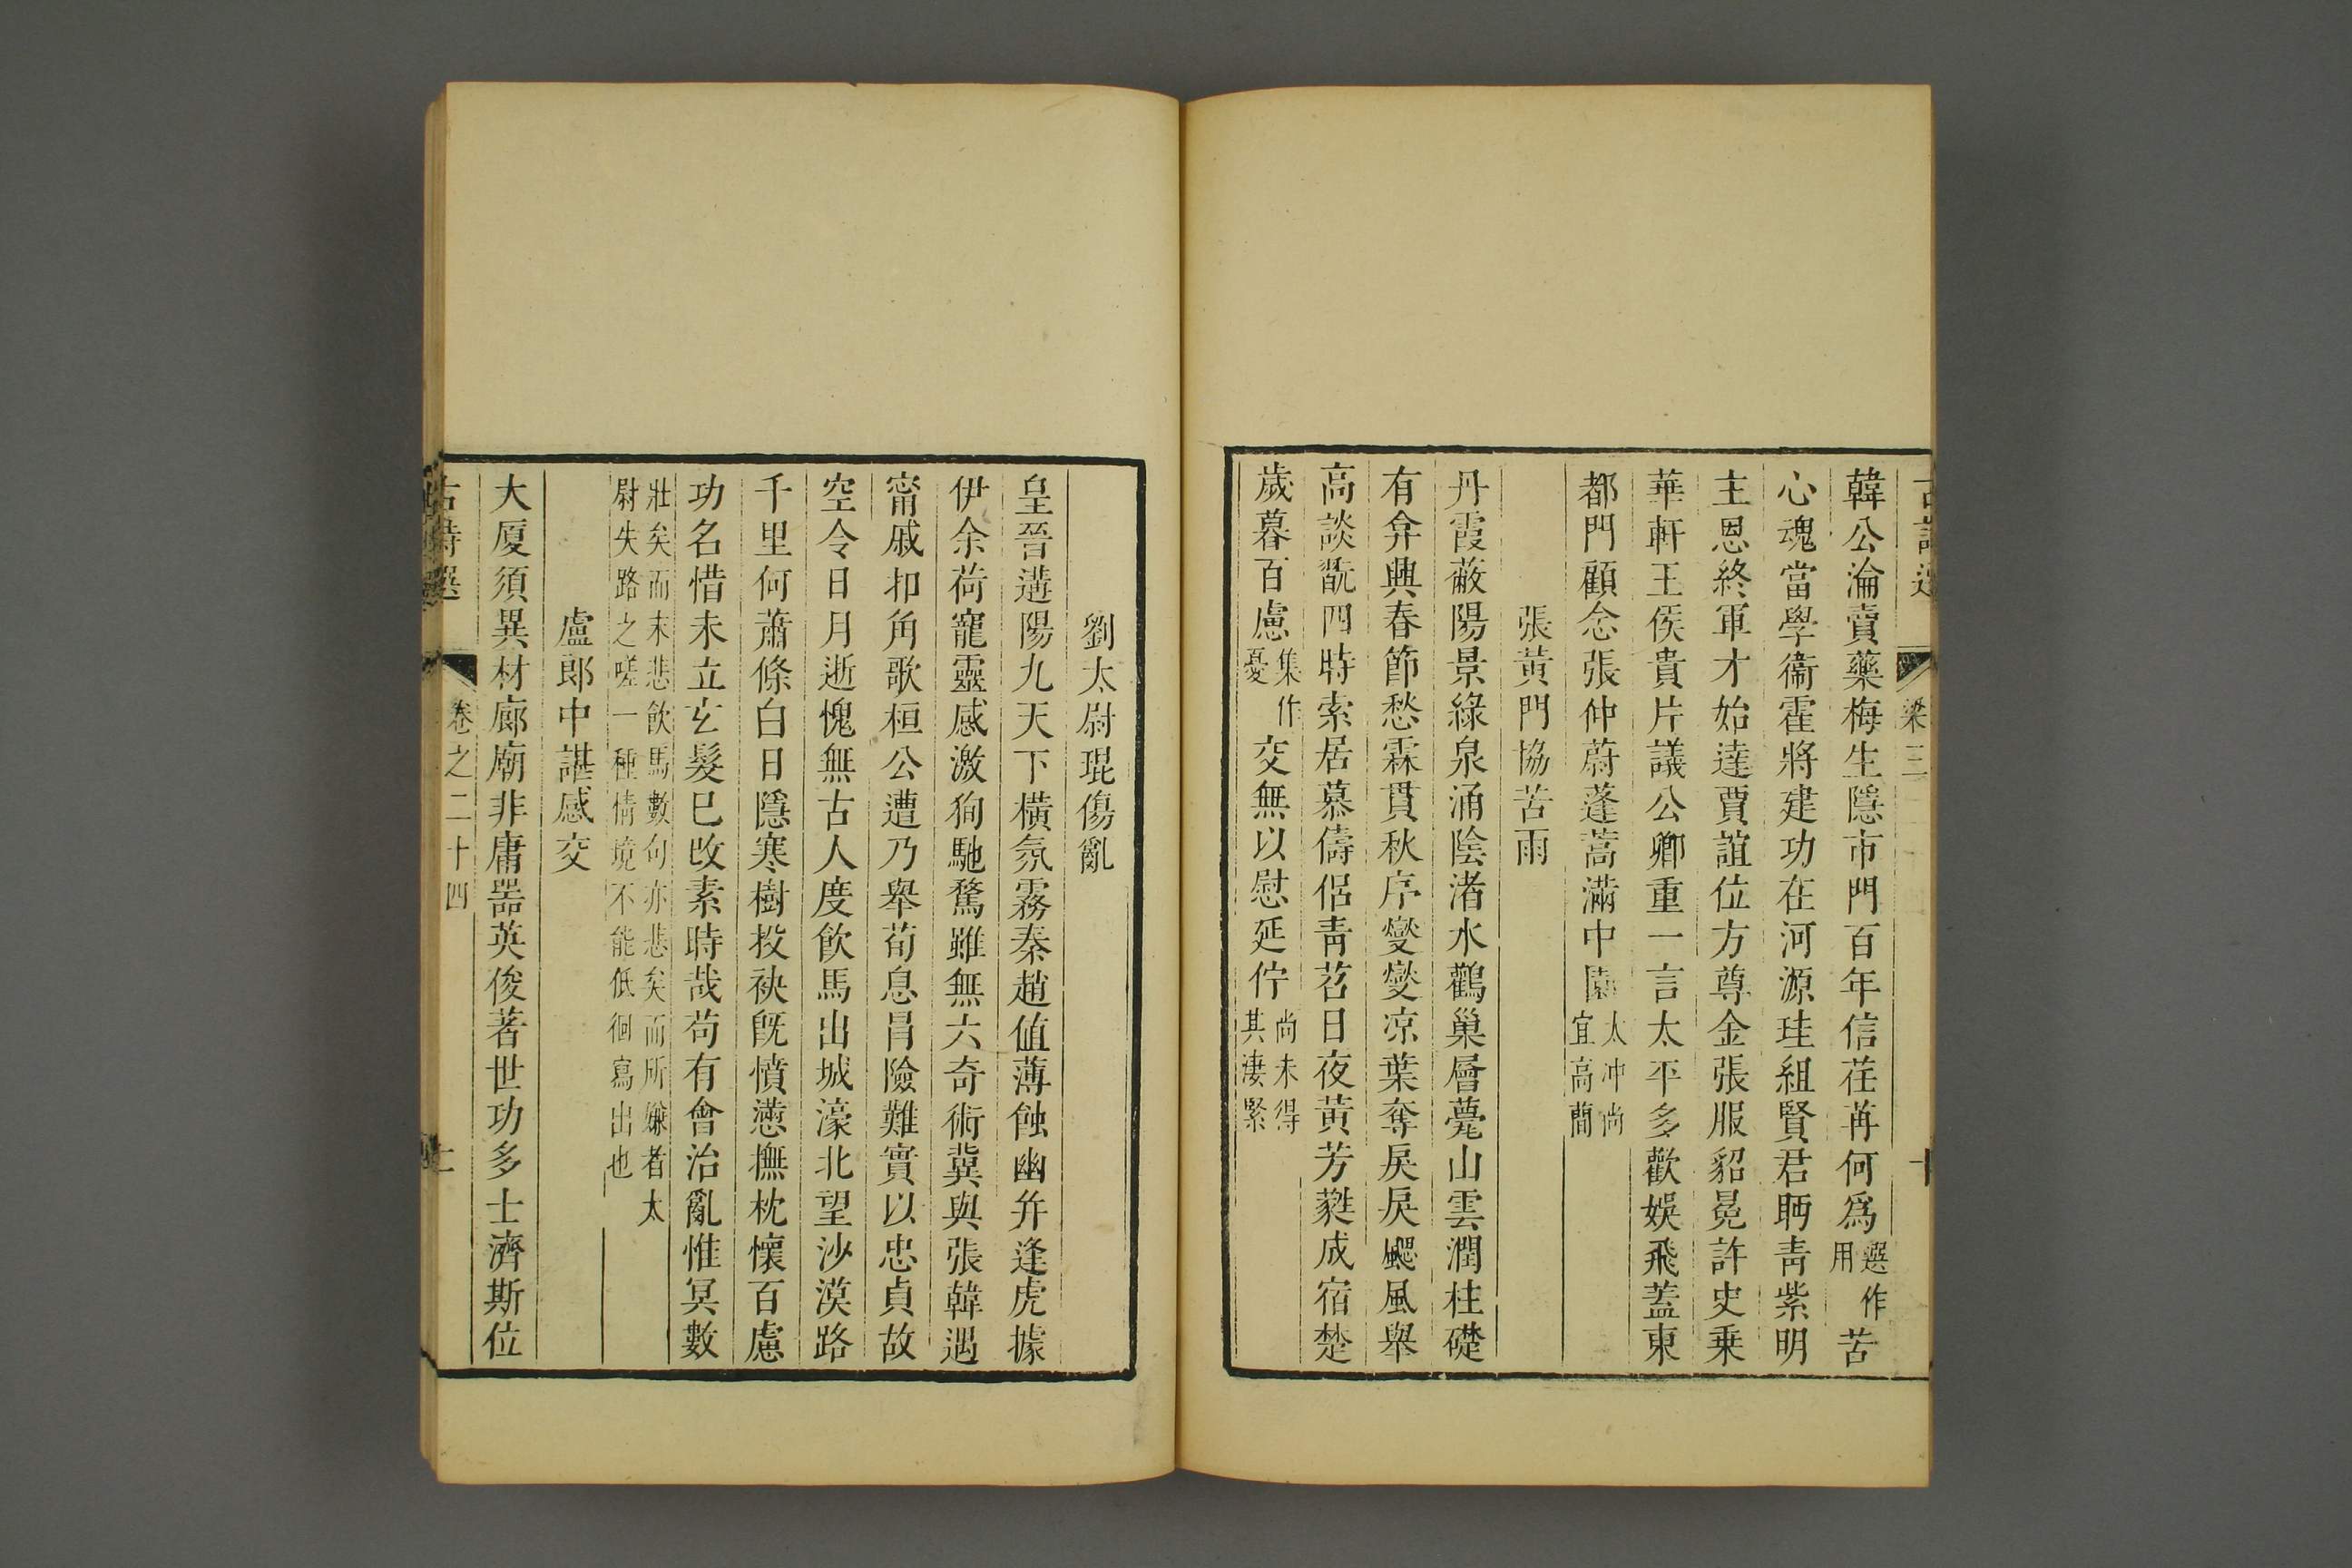 古詩選 梁三 十
韓公淪賣藥梅生隱市門百年信荏苒何爲選作用苦
心魂當學衞霍將建功在河源珪組賢君眄靑紫明
主恩終軍才始達賈誼位方尊金張服貂冕許史乗
華軒王侯貴片議公卿重一言太平多歡娛飛蓋東
都門顧念張仲蔚蓬蒿滿中園太冲尚宜高簡
張黃門協苦雨
丹霞蔽陽景綠泉涌陰渚水鸛巢層甍山雲潤柱礎
有弇興春節愁霖貫秋序燮燮凉葉奪戾戾颸風舉
高談翫四時索居慕儔侶靑苕日夜黃芳蕤成宿楚
歲暮百慮集作憂交無以慰延佇尚未得其淒緊
劉太尉琨傷亂
皇晉遘陽九天下橫氛霧秦趙值薄蝕幽幷逢虎據
伊余荷寵靈感激狥馳騖雖無六奇術冀與張韓遇
甯戚扣角歌桓公遭乃舉荀息冒險難實以忠貞故
空令日月逝愧無古人度飮馬出城濠北望沙漠路
千里何蕭條白日隱寒樹投袂旣憤懣撫枕懷百慮
功名惜未立玄髮巳改素時哉苟有會治亂惟冥數
壯矣而末悲飮馬數句亦悲矣而所嫌者太
尉失路之嗟一種情境不能低徊寫出也
盧郎中諶感交
大厦須異材廊廟非庸器英俊著世功多士濟斯位
古詩選 卷之二十四